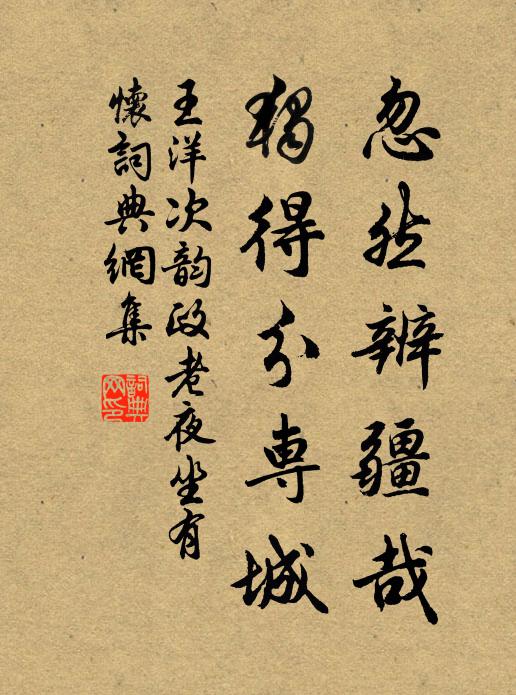 忽然辨疆哉
獨得分専城
王洋次韵政老夜坐有
懷詞典網集
詞典
网印